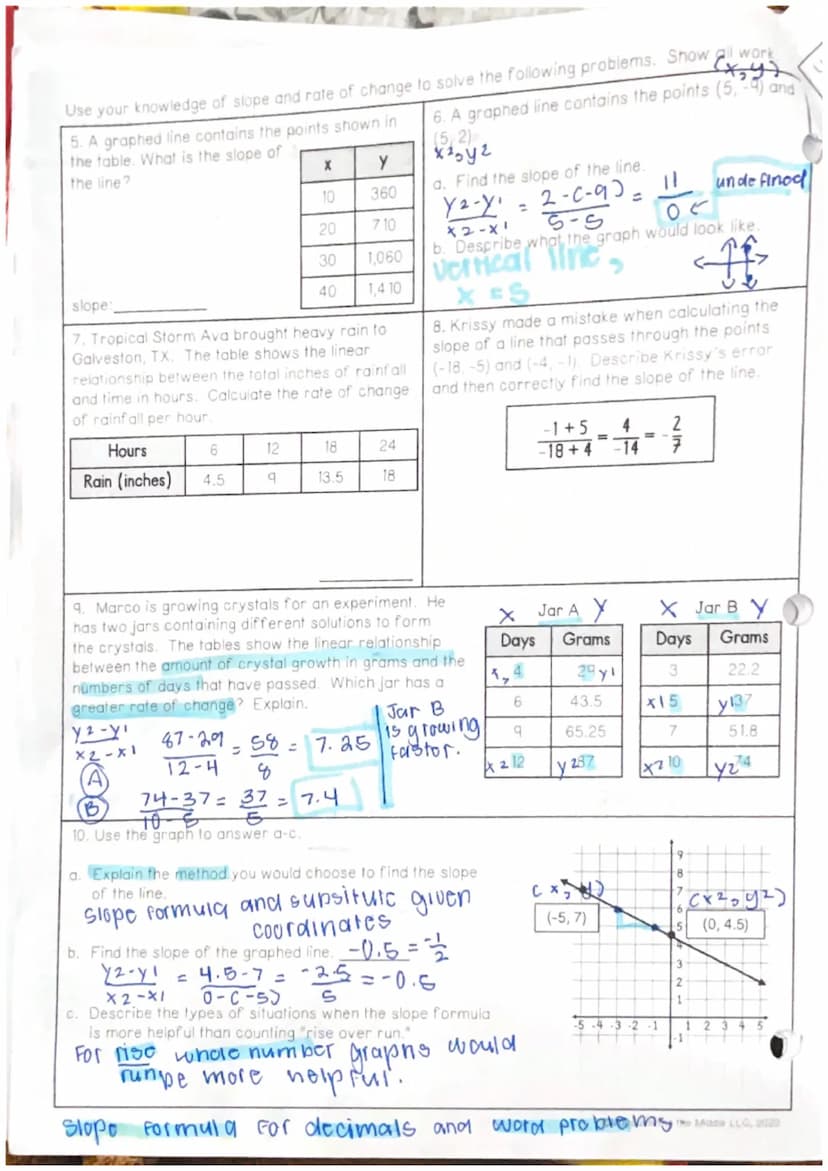 Use your knowledge of slope and rate of change to solve the following problems. Show all work
(x,y)
5. A graphed line contains the points shown in
the table. What is the slope of
the line?
x y
10 360
20 710
30 1,060
40 1,410
slope:
6. A graphed line contains the points (5, -9) and
(5, 2)
x2, y2
a. Find the slope of the line.
y2-y1 / x2-x1 = 2-(-9) / 5-5 = 11 / 0 undefined
b. Describe what the graph would look like.
vertical line,
x = 5
7. Tropical Storm Ava brought heavy rain to
Galveston, TX. The table shows the linear
relationship between the total inches of rainfall
and time in hours. Calculate the rate of change
of rainfall per hour.
Hours 6 12 18 24
Rain (inches) 4.5 9 13.5 18
8. Krissy made a mistake when calculating the
slope of a line that passes through the points
(-18, -5) and (-4, -1). Describe Krissy's error
and then correctly find the slope of the line.
-1 + 5 / -18 + 4 = 4 / -14 = - 2 / 7
9. Marco is growing crystals for an experiment. He
has two jars containing different solutions to form
the crystals. The tables show the linear relationship
between the amount of crystal growth in grams and the
numbers of days that have passed. Which jar has a
greater rate of change? Explain.
y2-y1 / x2-x1
A 87-29 / 12-4 = 58 / 8 = 7.25
B 74-37 / 10-5 = 37 / 5 = 7.4
Jar B
is growing
faster.
x Jar A y
Days Grams
x, 4 29 y1
6 43.5
9 65.25
x2 12 y2 87
x Jar B y
Days Grams
3 22.2
x1 5 y1 37
7 51.8
x2 10 y2 74
10. Use the graph to answer a-c.
a. Explain the method you would choose to find the slope
of the line.
slope formula and subsitute given
coordinates
b. Find the slope of the graphed line. -0.5 = -1/2
y2-y1 / x2-x1 = 4.5-7 / 0-(-5) = -2.5 / 5 = -0.5
c. Describe the types of situations when the slope formula
is more helpful than counting "rise over run."
For rise / run whole number graphs would
be more helpful.
slope formula for decimals and word problems
(x, y)
(-5, 7)
(x2, y2)
(0, 4.5)
9
8
7
6
5
4
3
2
1
-5 -4 -3 -2 -1 1 2 3 4 5
-1
LLC, 2020